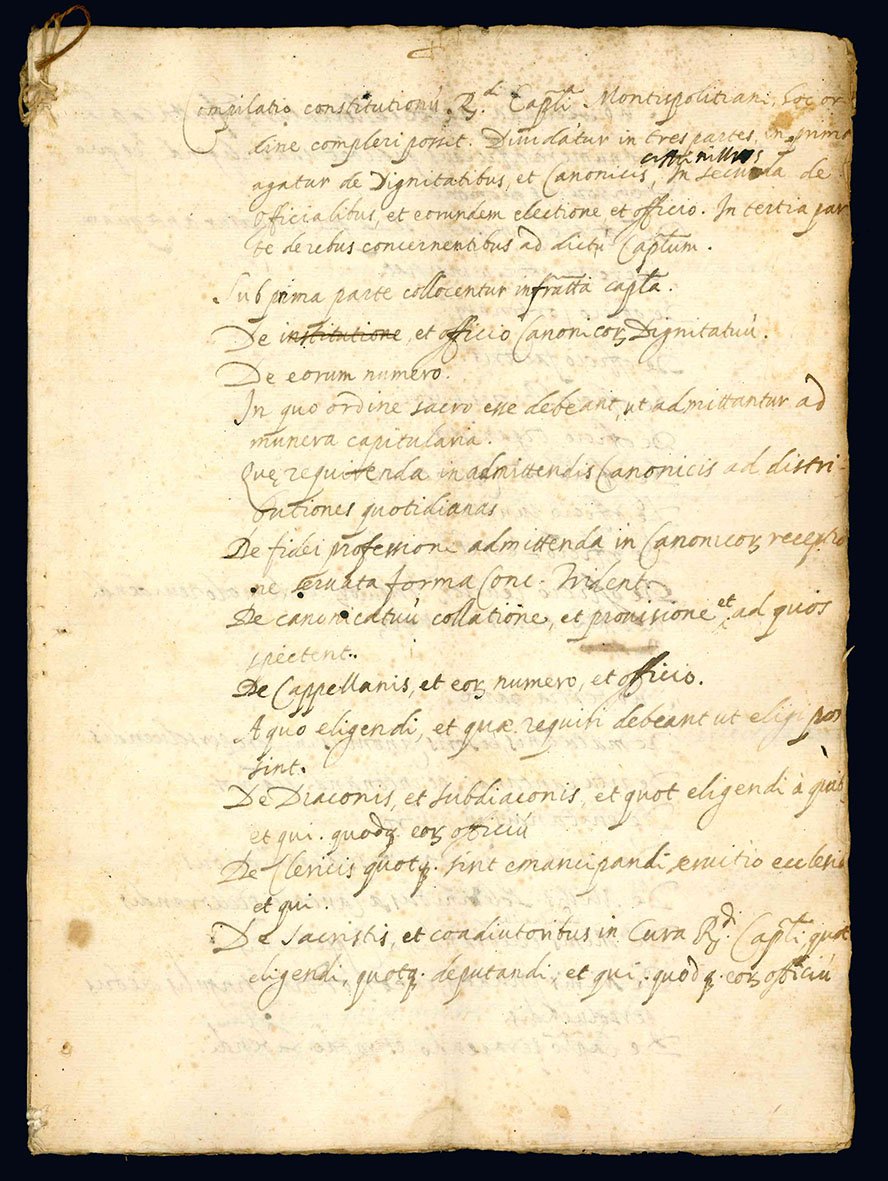 Compilatio constitutionū R.di Capli Montispolitiani, hoc or
dine compleri posset. Diuidātur in tres partes, in prima
agatur de Dignitatibus, et Canonicis, In secunda de
officialibus, et eorundem electione et officio. In tertia par
te de rebus concernentibus ad dictū Captum.
Sub prima parte collocentur infratta capta.
De institutione, et officio Canonicoꝝ Dignitatuū.
De eorum numero.
In quo ordine sacro esse debeant, ut admittantur ad
munera capitularia.
Quę requirenda in admittendis Canonicis ad distri-
butiones quotidianas
De fidei professione admittenda in Canonicoꝝ receptio
ne, seruata forma Conc. Trident.
De canonicatuū collatione, et prouisione et ad quos
spectent.
De Cappellanis, et eoꝝ numero, et officio.
A quo eligendi, et quæ requiri debeant ut eligi pos
sint.
De Diaconis, et subdiaconis, et quot eligendi à quib.
et qui. quodꝗ eoꝝ officiū
De Clericis quotꝗ sint emancipandi seruitio ecclesię
et qui.
De Sacristis, et coadiutoribus in Cura R.di Capli quot
eligendi, quotꝗ. deputandi, et qui. quodꝗ. eoꝝ officiū